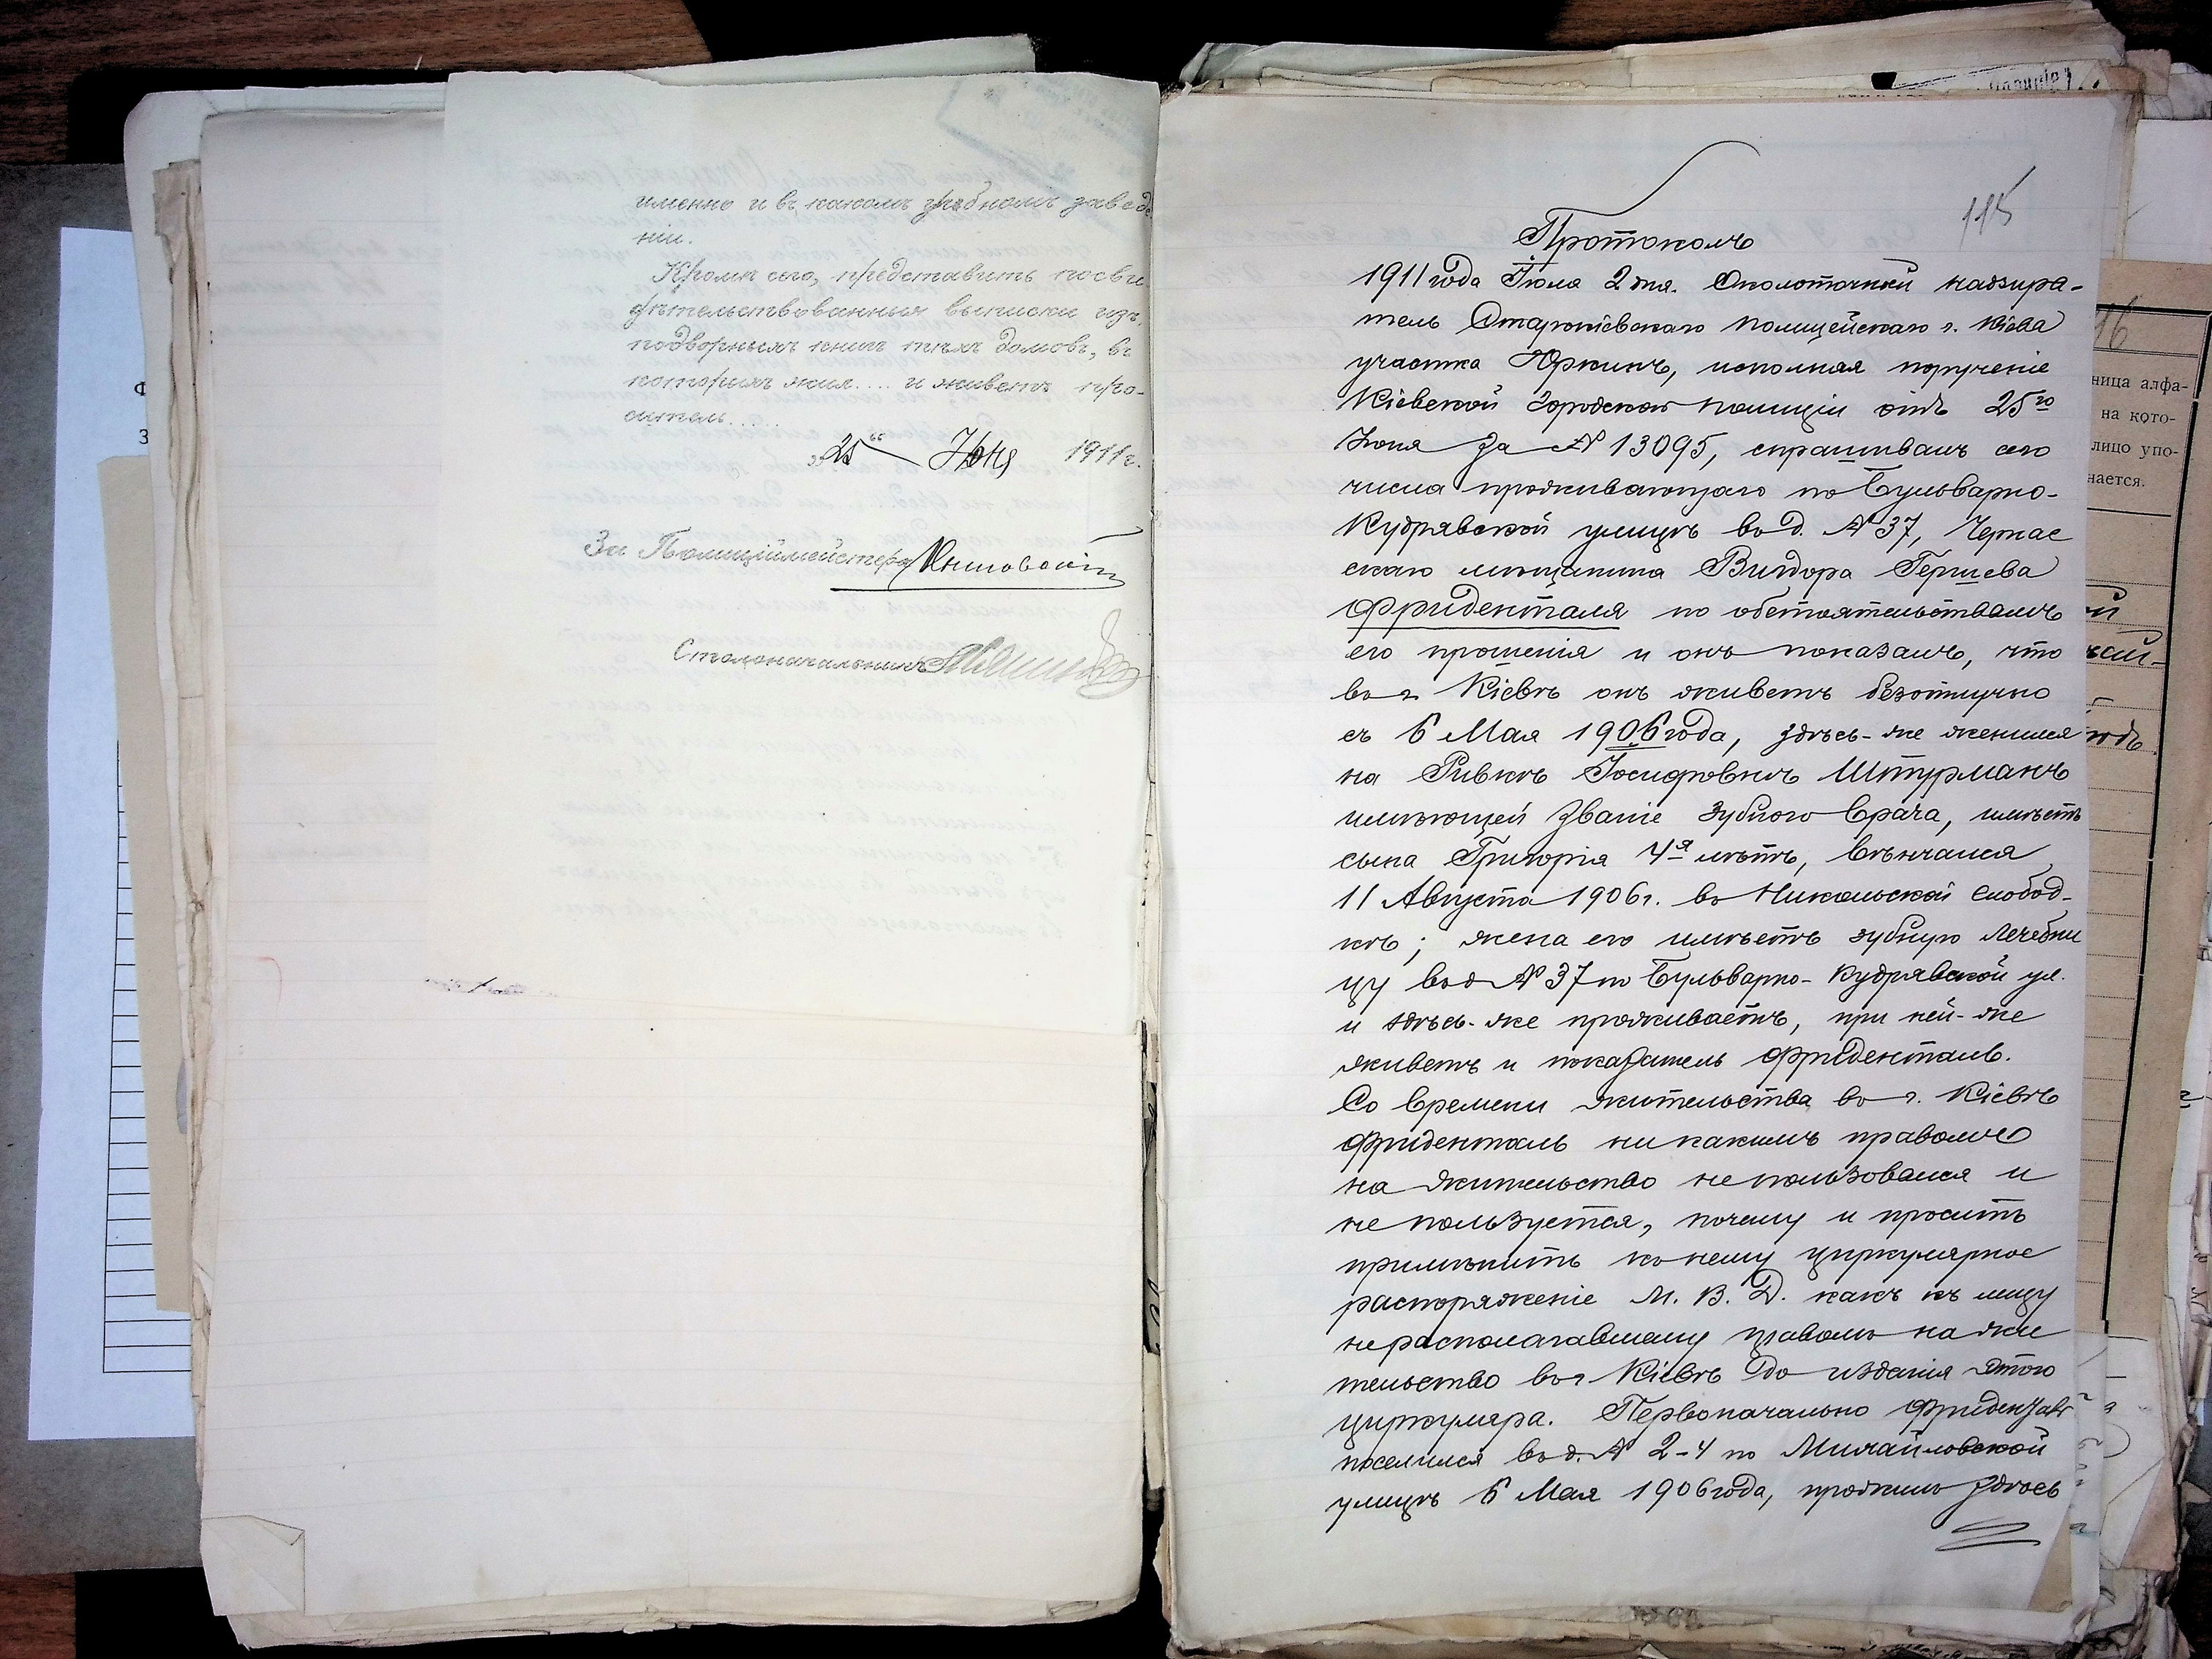 именно и въ какомъ учебномъ заведе
нiи.
Кромѣ сего, представить посви
дѣтельствованныя выписки изъ
подворныхъ книгъ тѣхъ домовъ, въ
которыхъ жил.... и живетъ про-
ситель.....
"25" Iюня 1911 г.
За Полицiймейстера
Столоначальникъ
115
Протоколъ
1911 года Iюля 2 дня. Околоточный надзира-
тель Старокiевскаго полицейскаго г. Кiева
участка Юркинъ, исполняя порученiе
Кiевской городской полицiи отъ 25го
Iюня за № 13095, спрашивалъ сего
числа проживающаго по Бульварно-
Кудрявской улицѣ въ д. № 37, Черкас
скаго мѣщанина Вигдора Гершева
Фриденталя по обстоятельствамъ
его прошенiя и онъ показалъ, что
въ г. Кiевѣ онъ живетъ безотлучно
съ 6 Мая 1906 года, здѣсь-же женился
на Ривкѣ Iосифовнѣ Штурманъ
имѣющей званiе зубного врача, имѣетъ
сына Григорiя 4-я лѣтъ, вѣнчался
11 Августа 1906 г. въ Никольской слобод-
кѣ; жена его имѣетъ зубную лечебни
цу въ д № 37 по Бульварно-Кудрявской ул.
и здѣсь-же проживаетъ, при ней-же
живетъ и показатель Фриденталь.
Со времени жительства въ г. Кiевѣ
Фриденталь никакимъ правомъ
на жительство не пользовался и
не пользуется, почему и проситъ
примѣнить къ нему циркулярное
распоряженiе М. В. Д. какъ къ лицу
не располагавшему правомъ на жи
тельство въ г Кiевѣ до изданiя этого
циркуляра. Первоначально
поселился въ д. № 2-4 по Михайловской
улицѣ 6 Мая 1906 года, проживъ здѣсь
ница алфа-
на кото-
лицо упо-
нается.